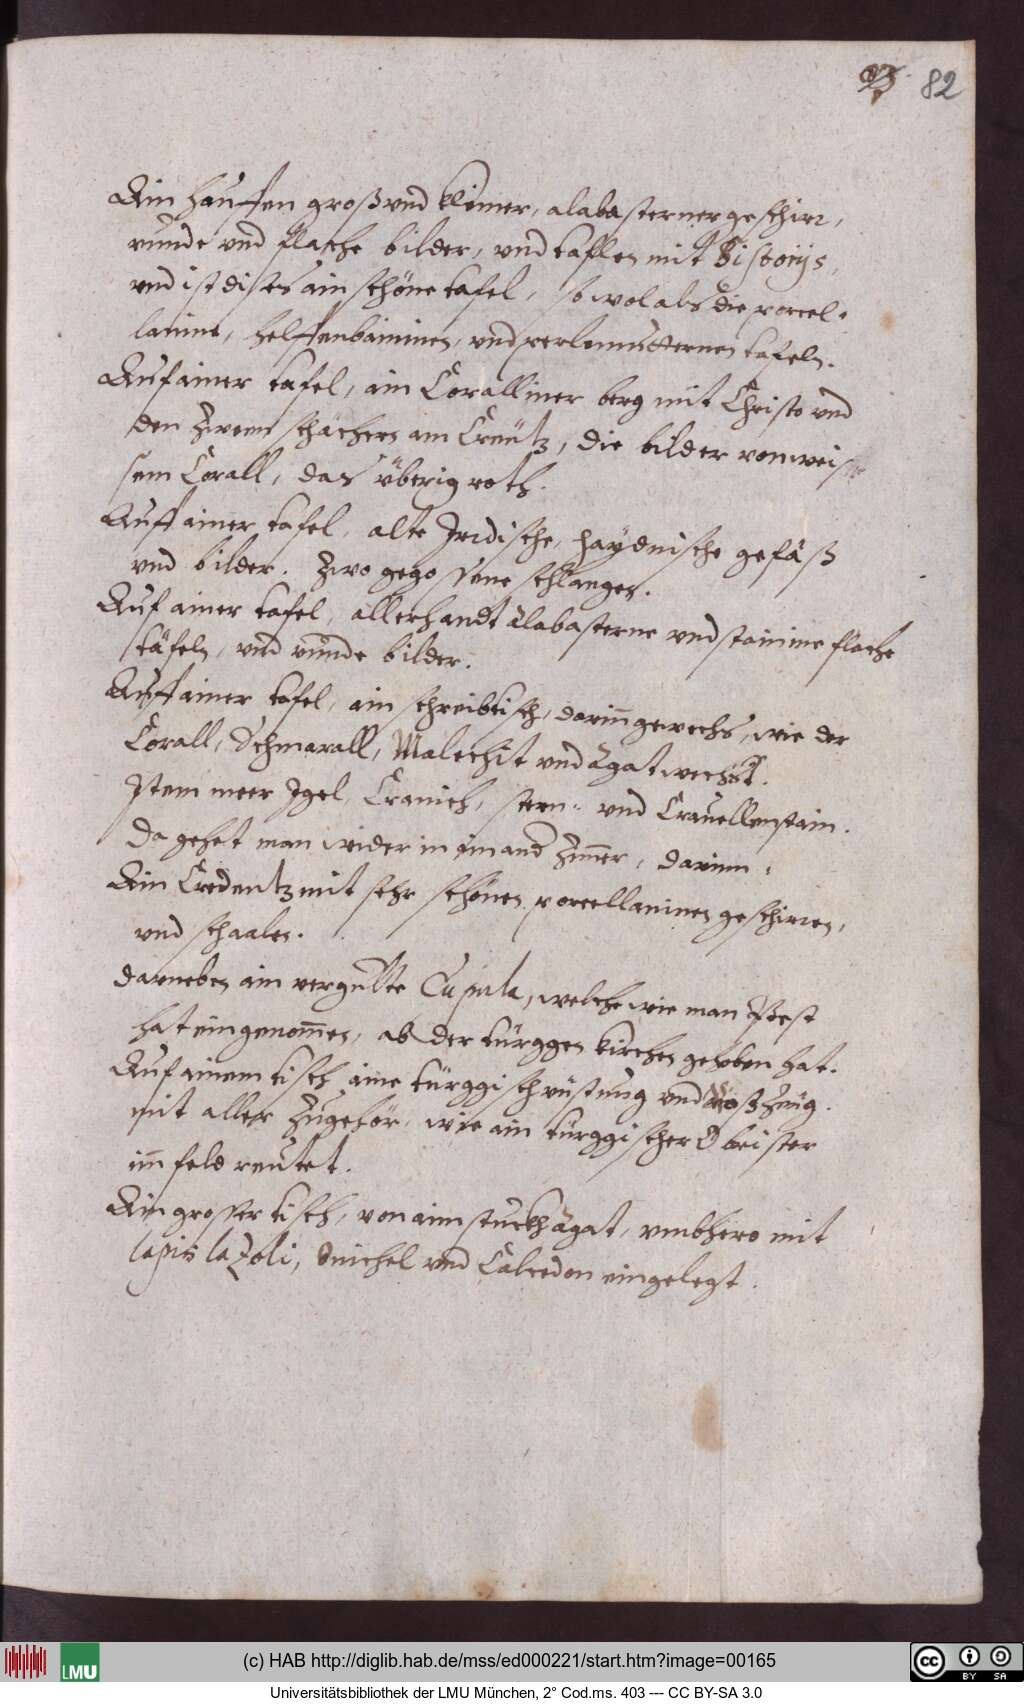 93 82
Ain hauffen groß vnd kleiner, alabasterner geschirr,
runde vnd flache bilder, vnd taflen mit Historijs,
vnd ist dises ain schöne tafel, so wol als die porcel-
lanine, helffenbainines, vnd perlemutternen tafeln.
Auf ainer tafel, ain Coralliner berg mit Christo vnd
den zween schächern am Creütz, die bilder von weis-
sem Corall, das überig roth.
Auff ainer tafel, alte Irrdische, haydnische gefäß
vnd bilder. Zwo gegossene schlangen.
Auf ainer tafel, allerhandt alabasterne vnd stainine flache
täfeln, vnd runde bilder.
Auff ainer tafel, ain schreibtisch, darinn gewechs, wie der
Corall, Schmarall, Malechit vnd Agat wechst.
Item meer Igel, Cranich, stern- vnd Crauellenstain.
Da gehet man wider in ain and Zimer, darinn,
Ain Credentz mit sehr schönen porcellaninen geschirren,
vnd schaalen.
Darneben ain vergulte Cupula, welche wie man Pest
hat eingenomen, ab der türggen kirchen gehoben hat.
Auf ainem tisch aine türggisch rüstung vnd Roßzeüg.
mit aller Zugehör, wie ain türggischer Obrister
im feld reutet.
Ain grosser tisch, von aim stuckh Agat, vmbhero mit
lapis lazoli, Onichel vnd Calcedon eingelegt.
(c) HAB http://diglib.hab.de/mss/ed000221/start.htm?image=00165
LMU
cc BY SA
Universitätsbibliothek der LMU München, 2° Cod.ms. 403 --- CC BY-SA 3.0